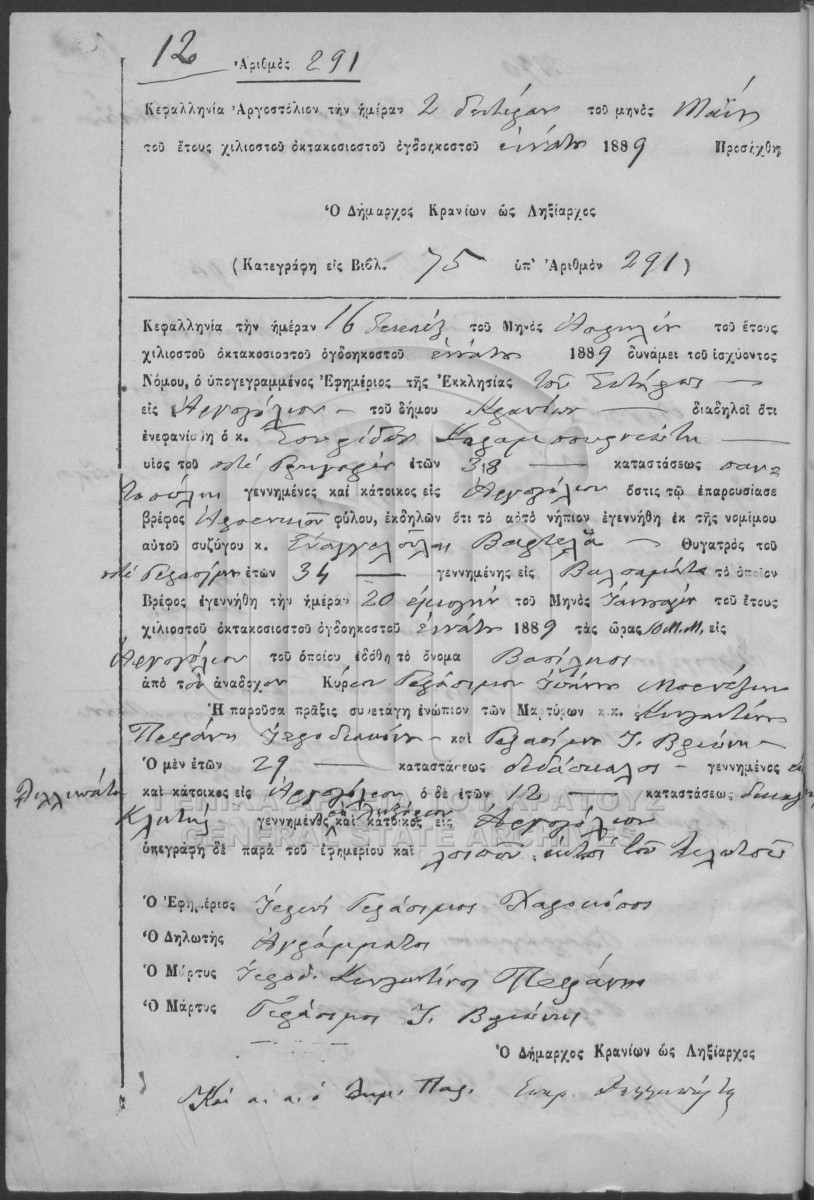 12 Ἀριθμὸς 291
Κεφαλληνία Ἀργοστόλιον τὴν ἡμέραν 2 δευτέραν τοῦ μηνὸς Μαΐου
τοῦ ἔτους χιλιοστοῦ ὀκτακοσιοστοῦ ὀγδοηκοστοῦ ἐννάτου 1889 Προσήχθη
Ὁ Δήμαρχος Κρανίων ὡς Ληξίαρχος
(Κατεγράφη εἰς Βιβλ. 75 ὑπ' Ἀριθμὸν 291)
Κεφαλληνία τὴν ἡμέραν 16 τοῦ Μηνὸς Ἀπριλίου τοῦ ἔτους
χιλιοστοῦ ὀκτακοσιοστοῦ ὀγδοηκοστοῦ ἐννάτου 1889 δυνάμει τοῦ ἰσχύοντος
Νόμου, ὁ ὑπογεγραμμένος Ἐφημέριος τῆς Ἐκκλησίας τοῦ Σωτῆρος
εἰς Ἀργοστόλιον τοῦ δήμου Κρανίων διαδηλοῖ ὅτι
ἐνεφανίσθη ὁ κ. Σπυρίδων
υἱὸς τοῦ ποτὲ Γρηγορίου ἐτῶν 38 καταστάσεως παν-
τοπώλη γεννημένος καὶ κάτοικος εἰς Ἀργοστόλιον ὅστις τῷ ἐπαρουσίασε
βρέφος Ἀρσενικοῦ φύλου, ἐκδηλῶν ὅτι τὸ αὐτὸ νήπιον ἐγεννήθη ἐκ τῆς νομίμου
αὐτοῦ συζύγου κ. Εὐαγγελούλας Βαρτελᾶ Θυγατρὸς τοῦ
ποτὲ Γερασίμου ἐτῶν 34 γεννημένης εἰς Βαλσαμάτα τὸ ὁποῖον
Βρέφος ἐγεννήθη τὴν ἡμέραν 20 εἰκοστὴν τοῦ Μηνὸς Ἰανουαρίου τοῦ ἔτους
χιλιοστοῦ ὀκτακοσιοστοῦ ὀγδοηκοστοῦ ἐννάτου 1889 τὰς ὥρας 10 Μ.Μ. εἰς
Ἀργοστόλιον τοῦ ὁποίου ἐδόθη τὸ ὄνομα Βασίλειος
ἀπὸ τὸν ἀνάδοχον Κύριον Γεράσιμον Ἰωάννου
Ἡ παροῦσα πρᾶξις συνετάγη ἐνώπιον τῶν Μαρτύρων κ.κ. Κωνσταντίνου
Πετράνη Ἱεροδιακόνου καὶ Γερασίμου Ἰ. Βριώνη
Ὁ μὲν ἐτῶν 29 καταστάσεως διδάσκαλος γεννημένος εἰς
Διλλινάτα καὶ κάτοικος εἰς Ἀργοστόλιον ὁ δὲ ἐτῶν 12 καταστάσεως
γεννημένος καὶ κάτοικος εἰς Ἀργοστόλιον
ὑπεγράφη δὲ παρὰ τοῦ ἐφημερίου καὶ λοιπῶν ἐκτὸς τοῦ δηλωτοῦ
ΓΕΝΙΚΑ ΑΡΧΕΙΑ ΤΟΥ ΚΡΑΤΟΥΣ
GENERAL STATE ARCHIVES
Ὁ Ἐφημέριος Ἱερεὺς Γεράσιμος
Ὁ Δηλωτὴς Ἀγράμματος
Ὁ Μάρτυς Ἱεροδ. Κωνσταντῖνος Πετράνης
Ὁ Μάρτυς Γεράσιμος Ἰ. Βριώνης
Ὁ Δήμαρχος Κρανίων ὡς Ληξίαρχος